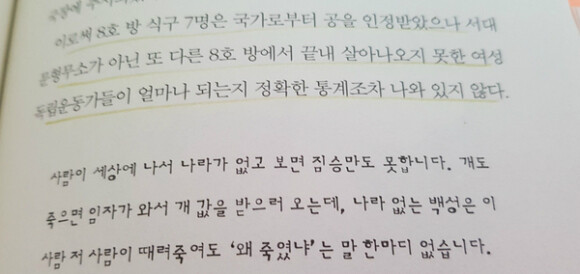 이로써 8호 방 식구 7명은 국가로부터 공을 인정받았으나 서대
문형무소가 아닌 또 다른 8호 방에서 끝내 살아나오지 못한 여성
독립운동가들이 얼마나 되는지 정확한 통계조차 나와 있지 않다.
사람이 세상에 나서 나라가 없고 보면 짐승만도 못합니다. 개도
죽으면 임자가 와서 개 값을 받으러 오는데, 나라 없는 백성은 이
사람 저 사람이 때려죽여도 ‘왜 죽였냐’는 말 한마디 없습니다.